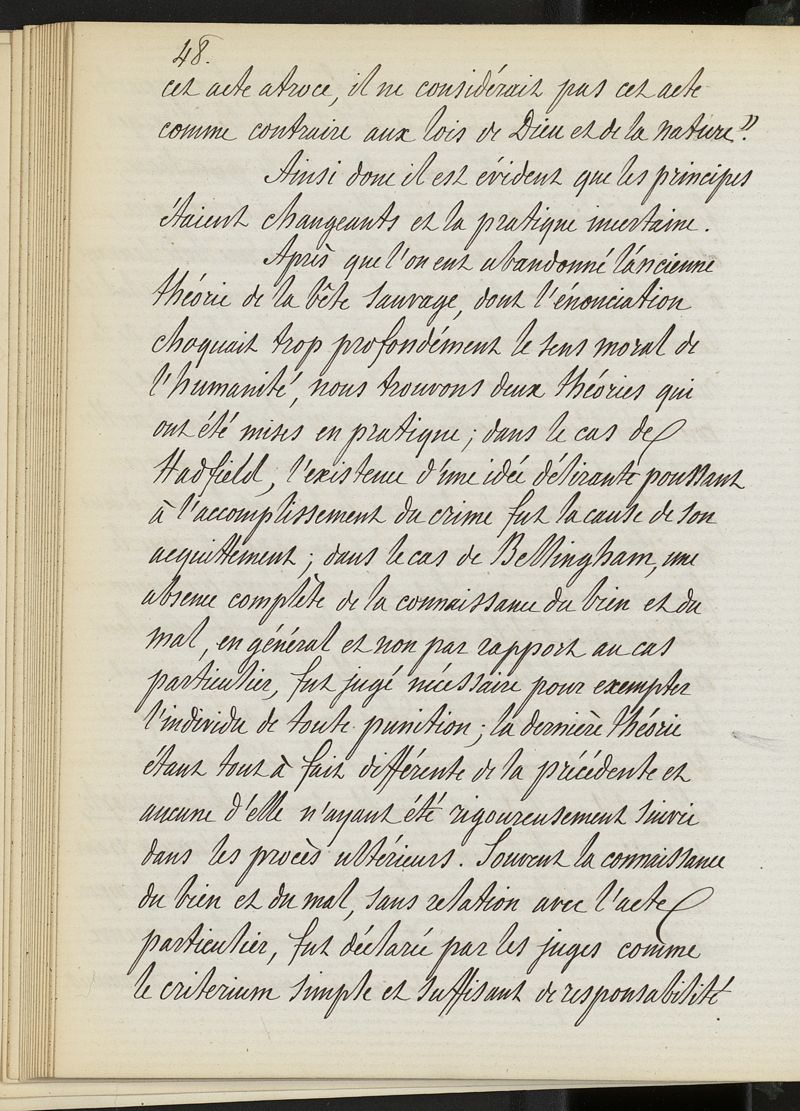 48.
cet acte atroce, il ne considérait pas cet acte
comme contraire aux lois de Dieu et de la nature".
Ainsi donc il est évident que les principes
étaient changeants et la pratique incertaine.
Après que l'on eut abandonné l'ancienne
théorie de la bête sauvage, dont l'énonciation
choquait trop profondément le sens moral de
l'humanité, nous trouvons deux théories qui
ont été mises en pratique; dans le cas de
Hadfield, l'existence d'une idée délirante poussant
à l'accomplissement du crime fut la cause de son
acquittement; dans le cas de Bellingham, une
absence complète de la connaissance du bien et du
mal, en général et non par rapport au cas
particulier, fut jugé nécessaire pour exempter
l'individu de toute punition; la dernière théorie
étant tout à fait différente de la précédente et
aucune d'elle n'ayant été rigoureusement suivie
dans les procès ultérieurs. Souvent la connaissance
du bien et du mal, sans relation avec l'acte
particulier, fut déclarée par les juges comme
le criterium simple et suffisant de responsabilité